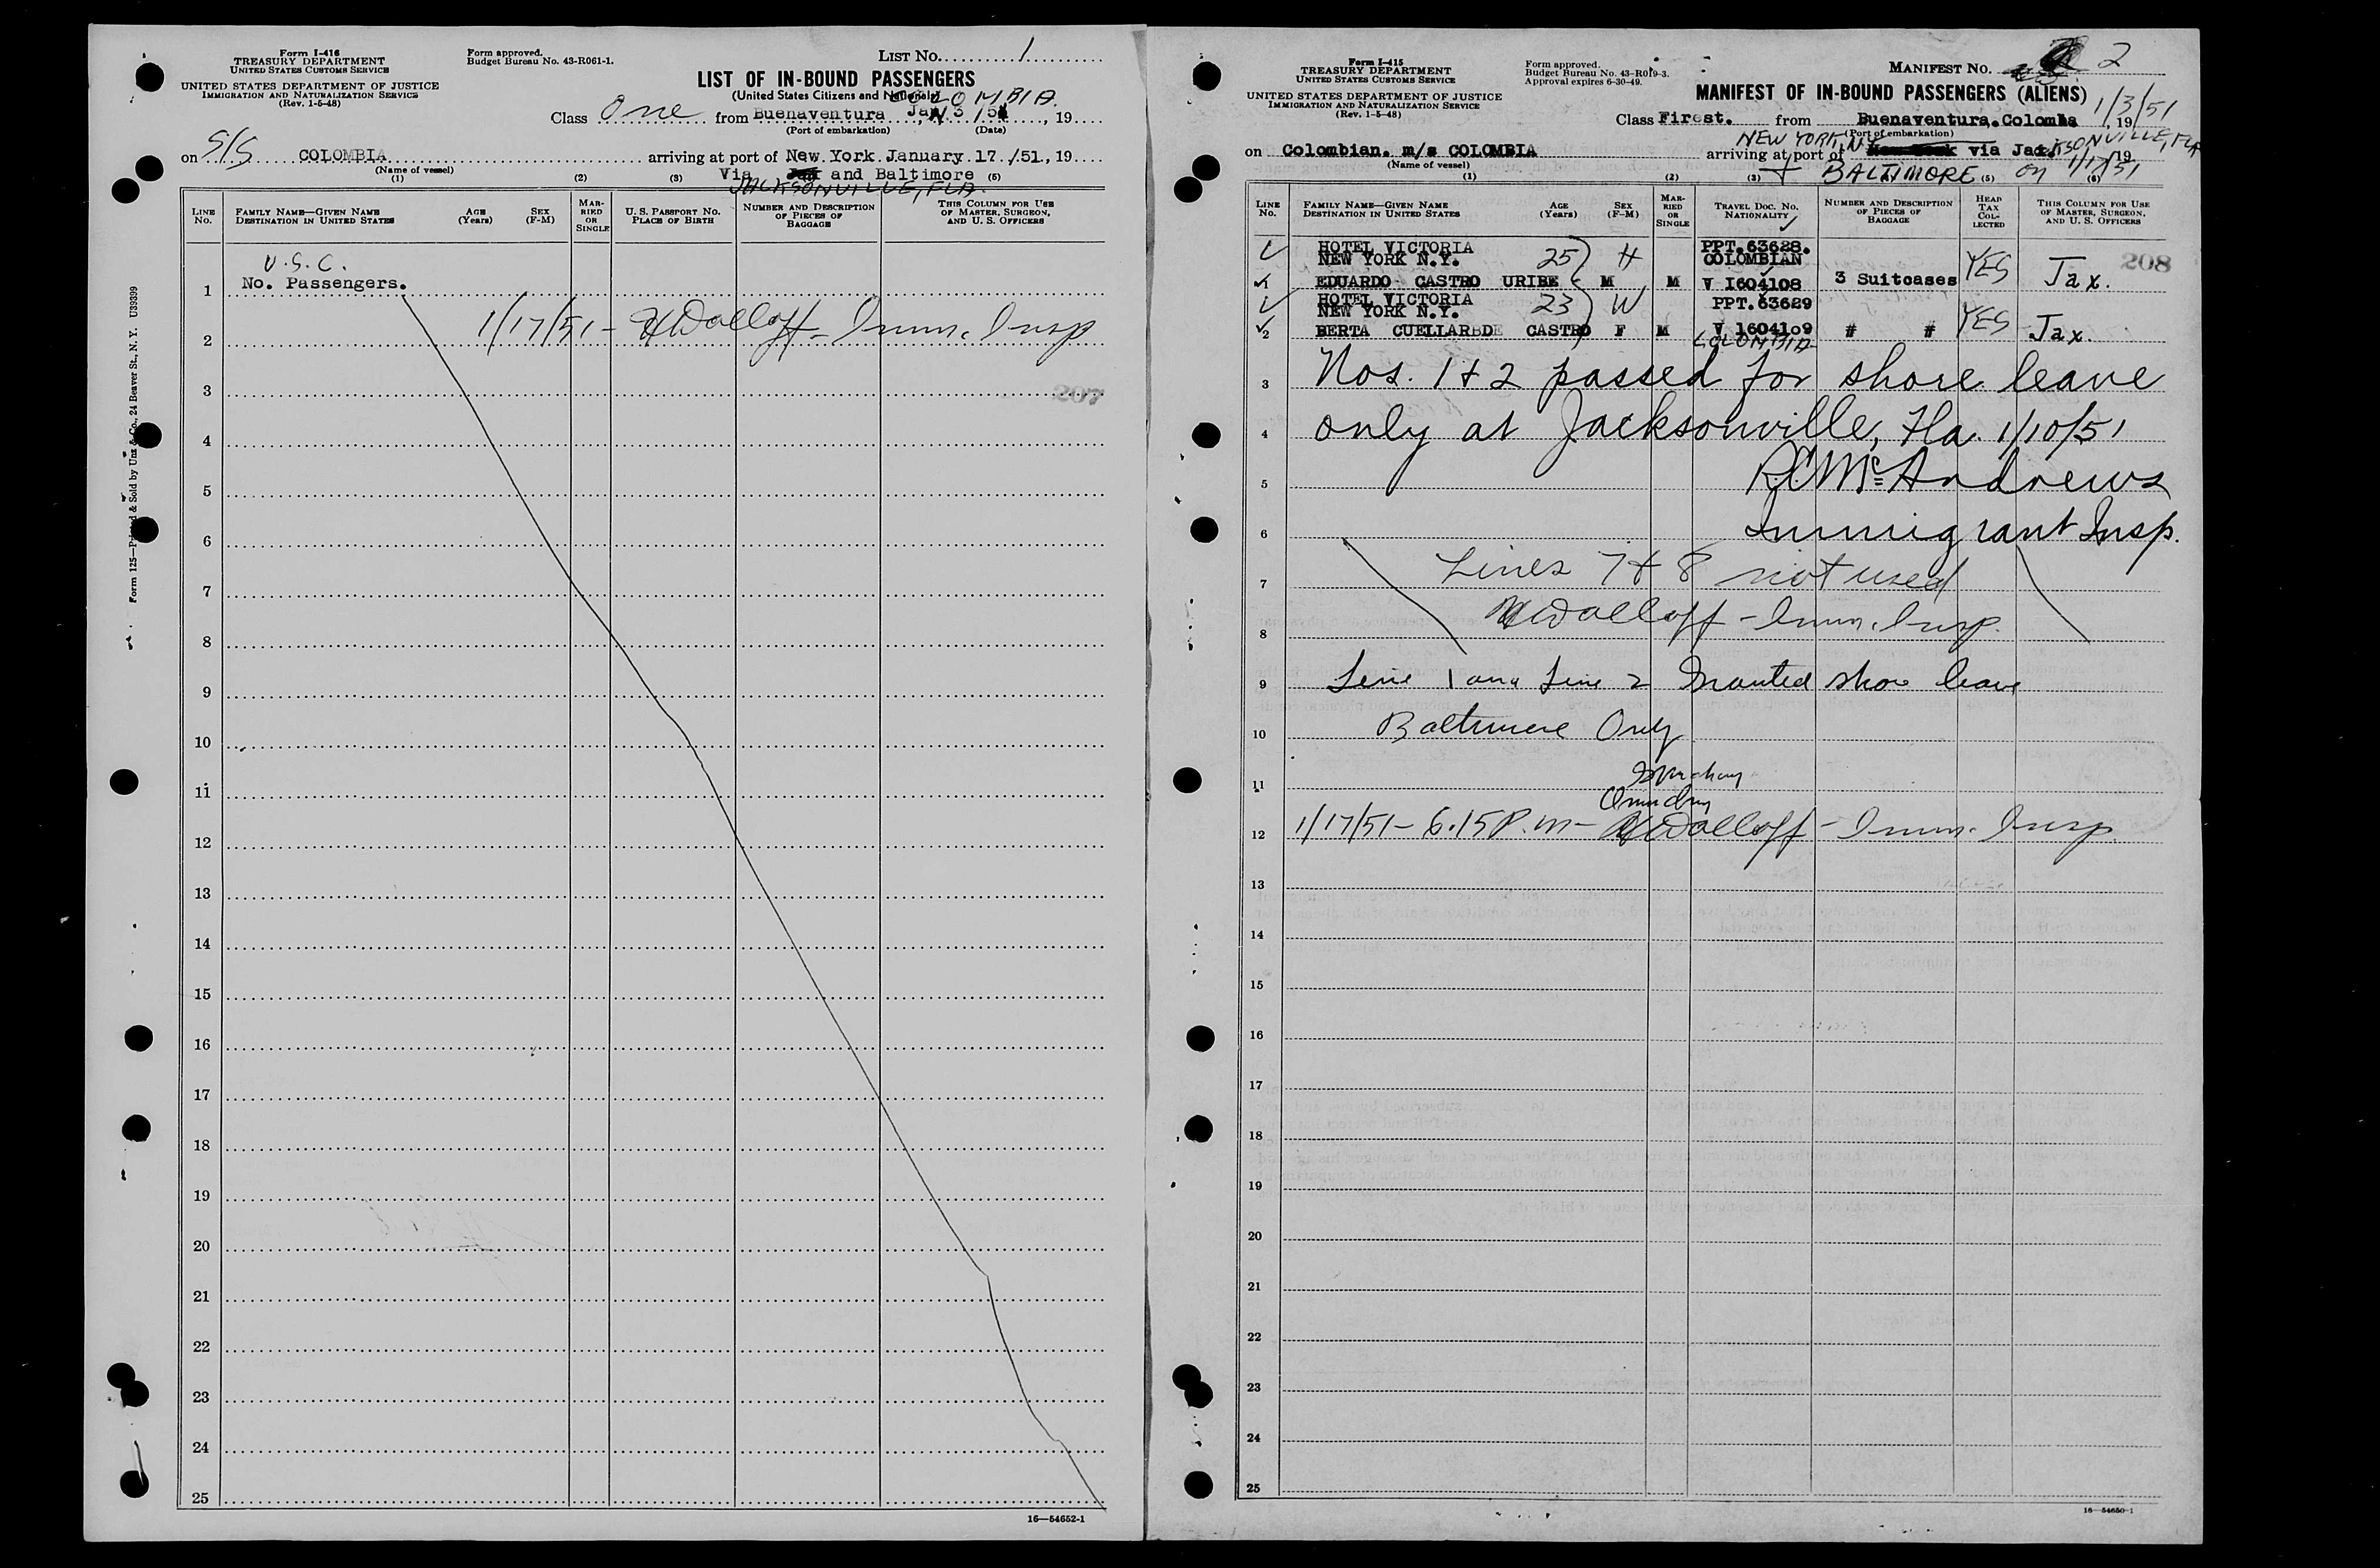 Form I-416
TREASURY DEPARTMENT
UNITED STATES CUSTOMS SERVICE
UNITED STATES DEPARTMENT OF JUSTICE
IMMIGRATION AND NATURALIZATION SERVICE
(Rev. 1-5-48)
Form approved.
Budget Bureau No. 43-R061-1.
LIST No. 1
LIST OF IN-BOUND PASSENGERS
(United States Citizens and Nationals)
COLOMBIA
Class One from Buenaventura, Jan 3 /51, 19
(Port of embarkation) (Date)
on S/S COLOMBIA arriving at port of New York January 17 /51, 19
(Name of vessel)
Via and Baltimore
JACKSONVILLE, FLA.
(1) (2) (3) (5)
LINE No.
FAMILY NAME—GIVEN NAME
DESTINATION IN UNITED STATES
AGE (Years)
SEX (F-M)
MARRIED OR SINGLE
U. S. PASSPORT NO.
PLACE OF BIRTH
NUMBER AND DESCRIPTION OF PIECES OF BAGGAGE
THIS COLUMN FOR USE OF MASTER, SURGEON, AND U. S. OFFICERS
U.S.C.
1 No. Passengers.
1/17/51 - Imm. Insp
2
207
3
4
5
6
7
8
9
10
11
12
13
14
15
16
17
18
19
20
21
22
23
24
25
16—54652-1
Form 125—Printed & Sold by Unz & Co., 24 Beaver St., N. Y. U39399
Form I-415
TREASURY DEPARTMENT
UNITED STATES CUSTOMS SERVICE
UNITED STATES DEPARTMENT OF JUSTICE
IMMIGRATION AND NATURALIZATION SERVICE
(Rev. 1-5-48)
Form approved.
Budget Bureau No. 43-R019-3.
Approval expires 6-30-49.
MANIFEST No. 2
MANIFEST OF IN-BOUND PASSENGERS (ALIENS)
1/3/51
Class Firest. from Buenaventura. Colombia, 19
(Port of embarkation)
NEW YORK, N.Y.
on Colombian. m/s COLOMBIA arriving at port of New York via Jacksonville, FLA 19
(Name of vessel)
+ BALTIMORE on 1/17/51
(1) (2) (3) (5) (6)
LINE No.
FAMILY NAME—GIVEN NAME
DESTINATION IN UNITED STATES
AGE (Years)
SEX (F-M)
MARRIED OR SINGLE
TRAVEL DOC. NO.
NATIONALITY
NUMBER AND DESCRIPTION OF PIECES OF BAGGAGE
HEAD TAX COLLECTED
THIS COLUMN FOR USE OF MASTER, SURGEON, AND U. S. OFFICERS
208
HOTEL VICTORIA PPT.63628.
NEW YORK N.Y. 25 H COLOMBIAN
1 EDUARDO CASTRO URIBE M M V I604108 3 Suitcases YES Jax.
HOTEL VICTORIA 23 W PPT.63629
NEW YORK N.Y.
2 BERTA CUELLAR DE CASTRO F M V 1604109 # # YES Jax.
COLOMBIA
3 Nos. 1 & 2 passed for shore leave
4 only at Jacksonville, Fla. 1/10/51
5 RC McAndrews
6 Immigrant Insp.
7 Lines 7 & 8 not used
8 - Imm. Insp.
9 Line 1 and Line 2 Granted shore leave
10 Baltimore Only
11
12 1/17/51 - 6.15 P.m - Imm. Insp.
13
14
15
16
17
18
19
20
21
22
23
24
25
16—54650-1